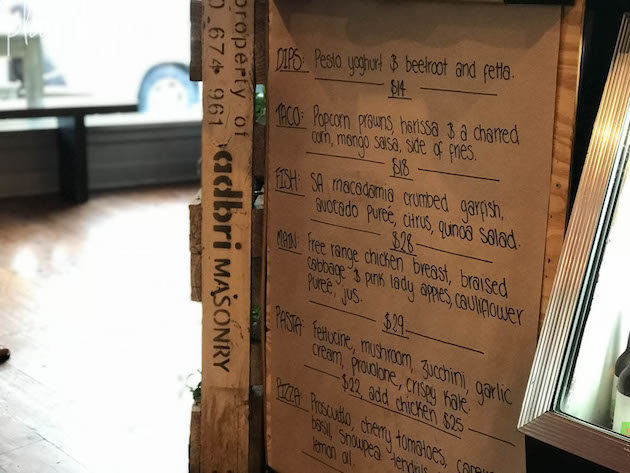 DIPS: Pesto yoghurt & beetroot and fetta.
$14
TACO: Popcorn prawns, harissa & a charred
corn, mango salsa, side of fries.
$18
FISH: SA macadamia crumbed garfish,
avocado pureé, citrus, quinoa salad.
$28
MAIN: Free range chicken breast, braised
cabbage & pink lady apples, cauliflower
pureé, jus.
$29
PASTA: Fettucine, mushroom, zucchini, garlic
cream, provolone, crispy kale.
$22, add chicken $25
PIZZA: Proscuitto, cherry tomatoes,
basil, snowpea tendrils
lemon oil.
property of
adbri MASONRY
0.674 961